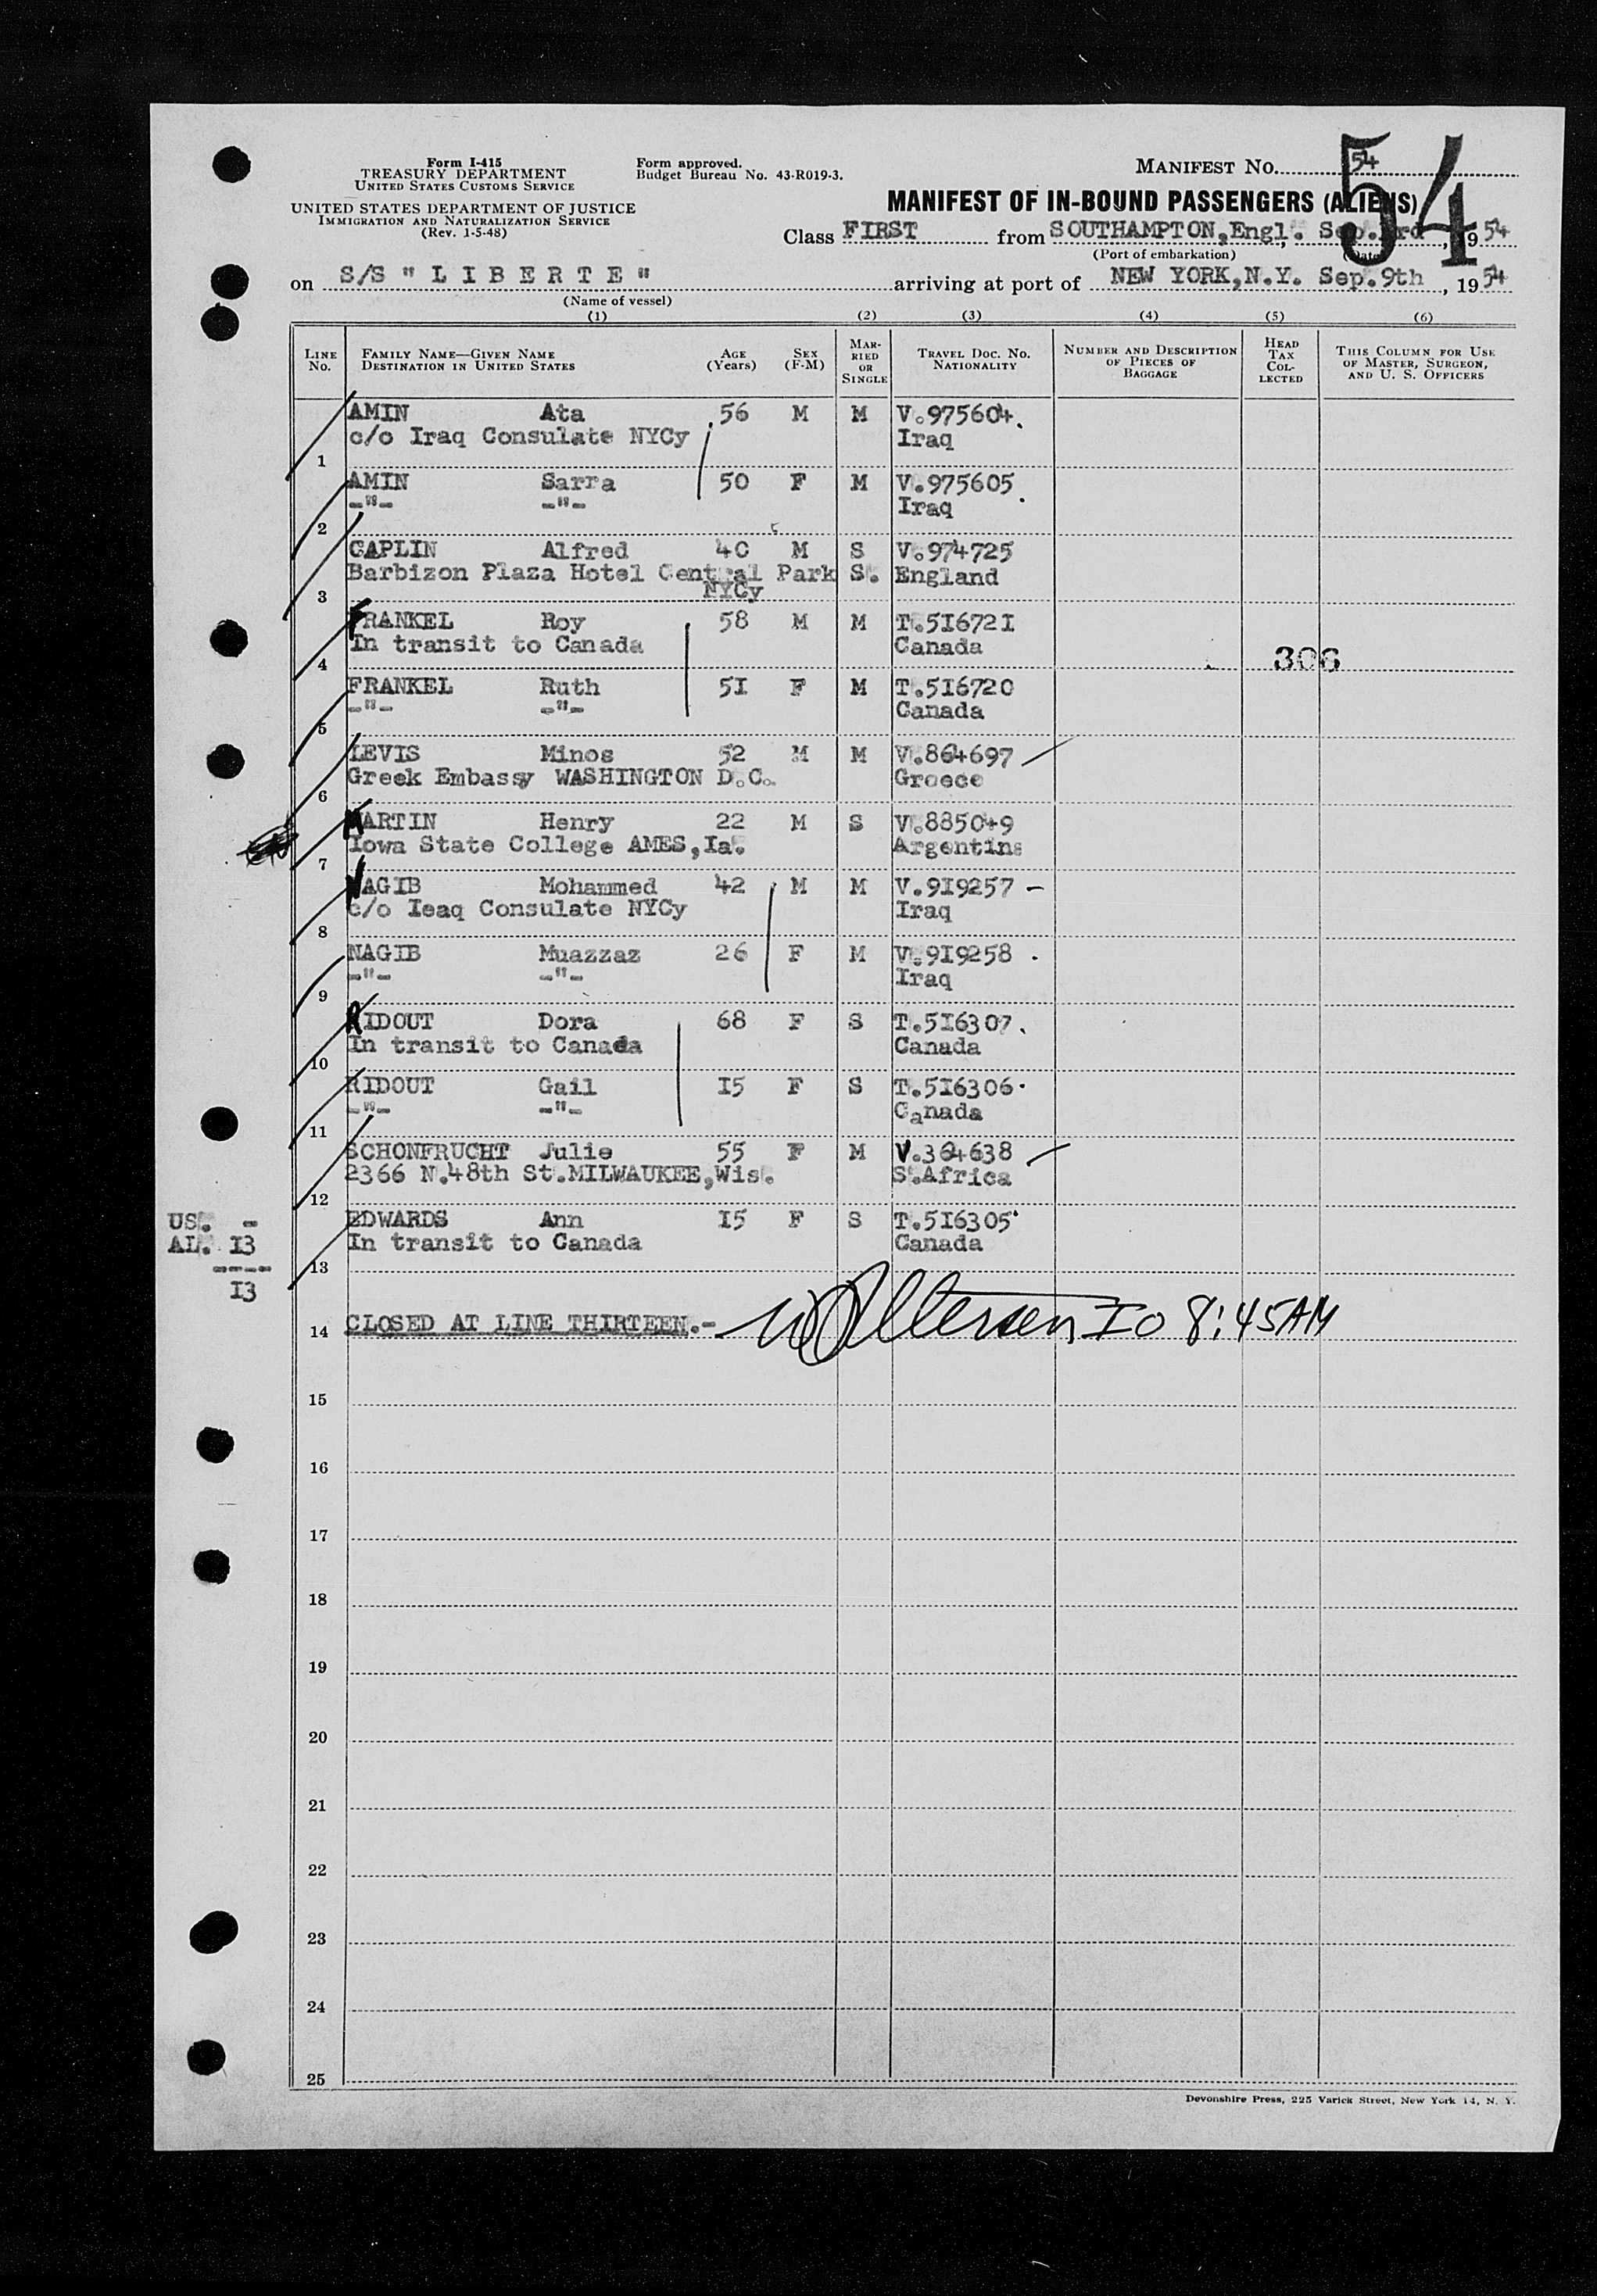 Form I-415
TREASURY DEPARTMENT
UNITED STATES CUSTOMS SERVICE
UNITED STATES DEPARTMENT OF JUSTICE
IMMIGRATION AND NATURALIZATION SERVICE
(Rev. 1-5-48)
Form approved.
Budget Bureau No. 43-R019-3.
MANIFEST NO. 54
54
MANIFEST OF IN-BOUND PASSENGERS (ALIENS)
Class FIRST from SOUTHAMPTON,Engl. Sep. 3rd, 1954
(Port of embarkation) (Date)
on S/S " L I B E R T E " arriving at port of NEW YORK,N.Y. Sep.9th, 1954
(Name of vessel)
(1) (2) (3) (4) (5) (6)
LINE NO. FAMILY NAME—GIVEN NAME DESTINATION IN UNITED STATES AGE (Years) SEX (F-M) MARRIED OR SINGLE TRAVEL DOC. NO. NATIONALITY NUMBER AND DESCRIPTION OF PIECES OF BAGGAGE HEAD TAX COLLECTED THIS COLUMN FOR USE OF MASTER, SURGEON, AND U. S. OFFICERS
AMIN Ata 56 M M V.975604.
1 c/o Iraq Consulate NYCy Iraq
AMIN Sarra 50 F M V.975605
2 -"- -"- Iraq
CAPLIN Alfred 40 M S V.974725
Barbizon Plaza Hotel Central Park S. England
3 NYCy
FRANKEL Roy 58 M M T.516721
4 In transit to Canada Canada 306
FRANKEL Ruth 51 F M T.516720
5 -"- -"- Canada
LEVIS Minos 52 M M V.864697
6 Greek Embassy WASHINGTON D.C. Greece
MARTIN Henry 22 M S V.885049
7 Iowa State College AMES,Ia. Argentina
NAGIB Mohammed 42 M M V.919257 -
8 c/o Ieaq Consulate NYCy Iraq
NAGIB Muazzaz 26 F M V.919258 .
9 -"- -"- Iraq
RIDOUT Dora 68 F S T.516307.
10 In transit to Canada Canada
RIDOUT Gail 15 F S T.516306.
11 -"- -"- Canada
SCHONFRUCHT Julie 55 F M V.364638
12 2366 N.48th St.MILWAUKEE,Wis. S.Africa
EDWARDS Ann 15 F S T.516305
13 In transit to Canada Canada
US. -
AL. 13
----
13
14 CLOSED AT LINE THIRTEEN.- IO 8:45AM
15
16
17
18
19
20
21
22
23
24
25
Devonshire Press, 225 Varick Street, New York 14, N. Y.